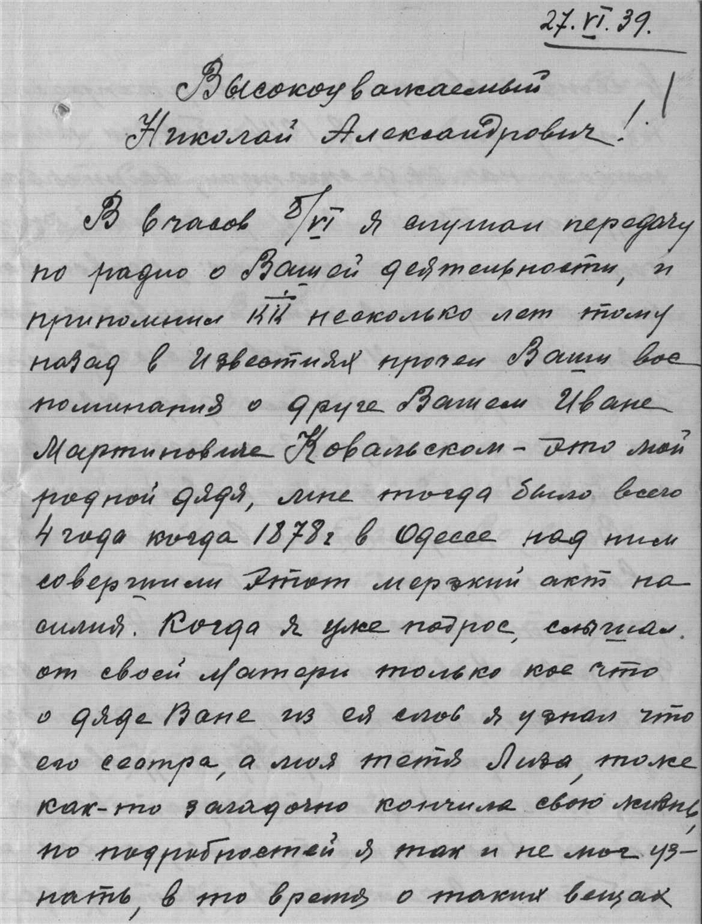 27.VI.39.
Высокоуважаемый
Николай Александрович!
В 6 часов 5/VI я слушал передачу
по радио о Вашей деятельности, и
припомнил КК несколько лет тому
назад в Известиях прочел Ваши вос
поминания о друге Вашем Иване
Мартиновиче Ковальском - это мой
родной дядя, мне тогда было всего
4 года когда 1878г в Одессе над ним
совершили этот мерзкий акт на
силия. Когда я уже подрос, слышал
от своей матери только кое что
о дяде Ване из ея слов я узнал что
его сестра, а моя тетя Лиза, тоже
как-то загадочно кончила свою жизнь,
но подробностей я так и не мог уз-
нать, в то время о таких вещах